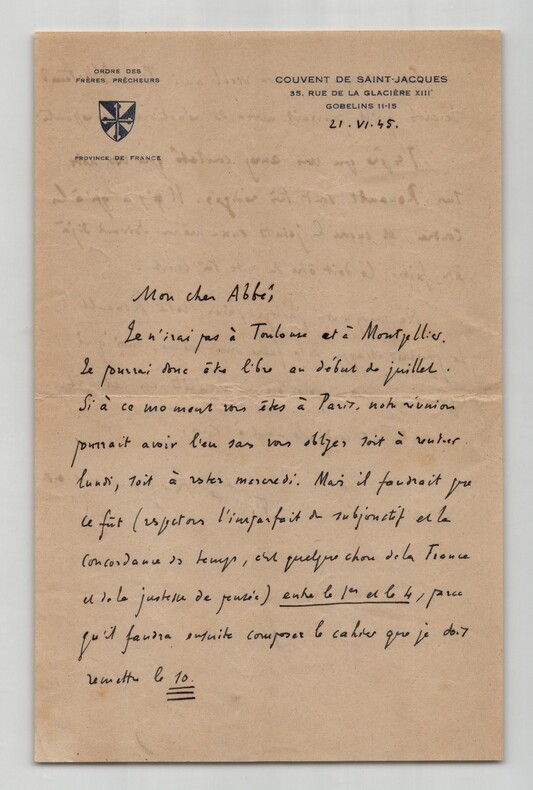 ORDRE DES
FRÈRES PRÊCHEURS
PROVINCE DE FRANCE
COUVENT DE SAINT-JACQUES
35, RUE DE LA GLACIÈRE XIIIᵉ
GOBELINS 11-15
21.VI.45.
Mon cher Abbé,
Je n'irai pas à Toulouse et à Montpellier.
Je pourrai donc être libre au début de juillet.
Si à ce moment vous êtes à Paris, notre réunion
pourrait avoir lieu sans vous obliger soit à rentrer
lundi, soit à rester mercredi. Mais il faudrait que
ce fût (respectons l'imparfait du subjonctif et la
concordance des temps, c'est quelque chose de la France
et de la justesse de pensée) entre le 1er et le 4, parce
qu'il faudra ensuite composer le cahier que je dois
remettre le 10.